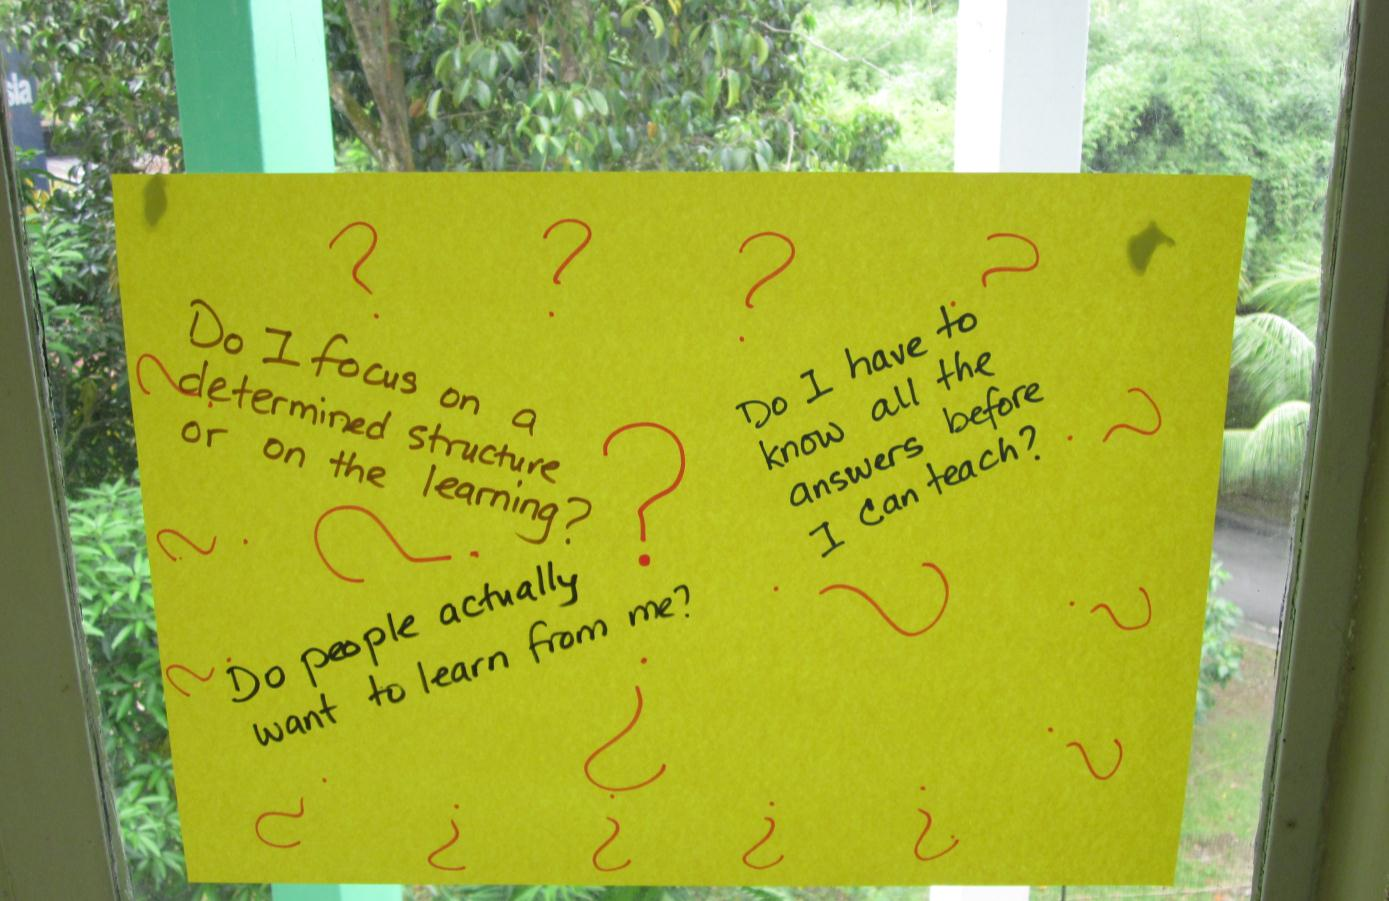 Do I focus on a
determined structure
or on the learning?
Do I have to
know all the
answers before
I can teach?
Do people actually
want to learn from me?